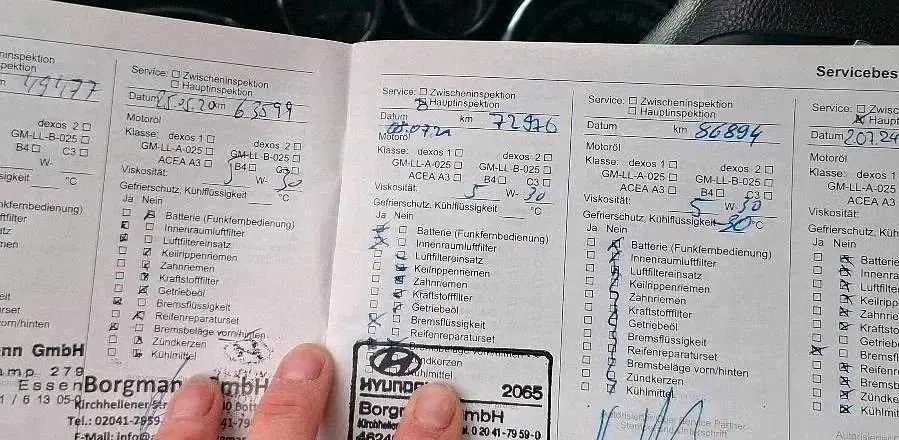 ninspektion
pektion
49477
dexos 2 ☐
GM-LL-B-025 ☐
B4 ☐ C3 ☐
W-
sigkeit ___ °C
nbedienung)
uftfilter
tz
en
it
turset
vorn/hinten
ann GmbH
amp 279
Essen
Service: ☐ Zwischeninspektion
☐ Hauptinspektion
Datum 25.05.20 km 63599
Motoröl
Klasse: dexos 1 ☐ dexos 2 ☐
GM-LL-A-025 ☐ GM-LL-B-025 ☐
ACEA A3 ☐ B4 ☐ C3 ☐
Viskosität: 5 W- 30
Gefrierschutz, Kühlflüssigkeit ___ °C
Ja Nein
Batterie (Funkfernbedienung)
Innenraumluftfilter
Luftfiltereinsatz
Keilrippenriemen
Zahnriemen
Kraftstofffilter
Getriebeöl
Bremsflüssigkeit
Reifenreparaturset
Bremsbeläge vorn/hinten
Zündkerzen
Kühlmittel
Borgmann GmbH
Kirchhellener
Tel.: 02041-
E-Mail: info@
Service: ☐ Zwischeninspektion
☒ Hauptinspektion
Datum km 72976
Motoröl
Klasse: dexos 1 ☐ dexos 2 ☐
GM-LL-A-025 ☐ GM-LL-B-025 ☐
ACEA A3 ☐ B4 ☐ C3 ☐
Viskosität: 5 W- 30
Gefrierschutz, Kühlflüssigkeit ___ °C
Ja Nein
Batterie (Funkfernbedienung)
Innenraumluftfilter
Luftfiltereinsatz
Keilrippenriemen
Zahnriemen
Kraftstofffilter
Getriebeöl
Bremsflüssigkeit
Reifenreparaturset
Bremsbeläge vorn/hinten
Zündkerzen
Kühlmittel
HYUNDAI 2065
Borg mbH
4624 l. 0 20 41-79 59-0
Service: ☐ Zwischeninspektion
☐ Hauptinspektion
Datum km 86894
Motoröl
Klasse: dexos 1 ☐ dexos 2 ☐
GM-LL-A-025 ☐ GM-LL-B-025 ☐
ACEA A3 ☐ B4 ☐ C3 ☐
Viskosität: 5 W- 30
Gefrierschutz, Kühlflüssigkeit -30 °C
Ja Nein
Batterie (Funkfernbedienung)
Innenraumluftfilter
Luftfiltereinsatz
Keilrippenriemen
Zahnriemen
Kraftstofffilter
Getriebeöl
Bremsflüssigkeit
Reifenreparaturset
Bremsbeläge vorn/hinten
Zündkerzen
Kühlmittel
Autorisierter Opel Service Partner
Stempel und Unterschrift
Servicebes
Service: ☐ Zwisc
☒ Haupt
Datum
Motoröl
Klasse: dexos 1
GM-LL-A-025
ACEA A3
Viskosität:
Gefrierschutz, Kühl
Ja Nein
Batterie
Innenra
Luftfilte
Keilripp
Zahnrie
Kraftsto
Getriebe
Bremsfl
Reifenre
Bremsbe
Zündker
Kühlmitt
Autorisier